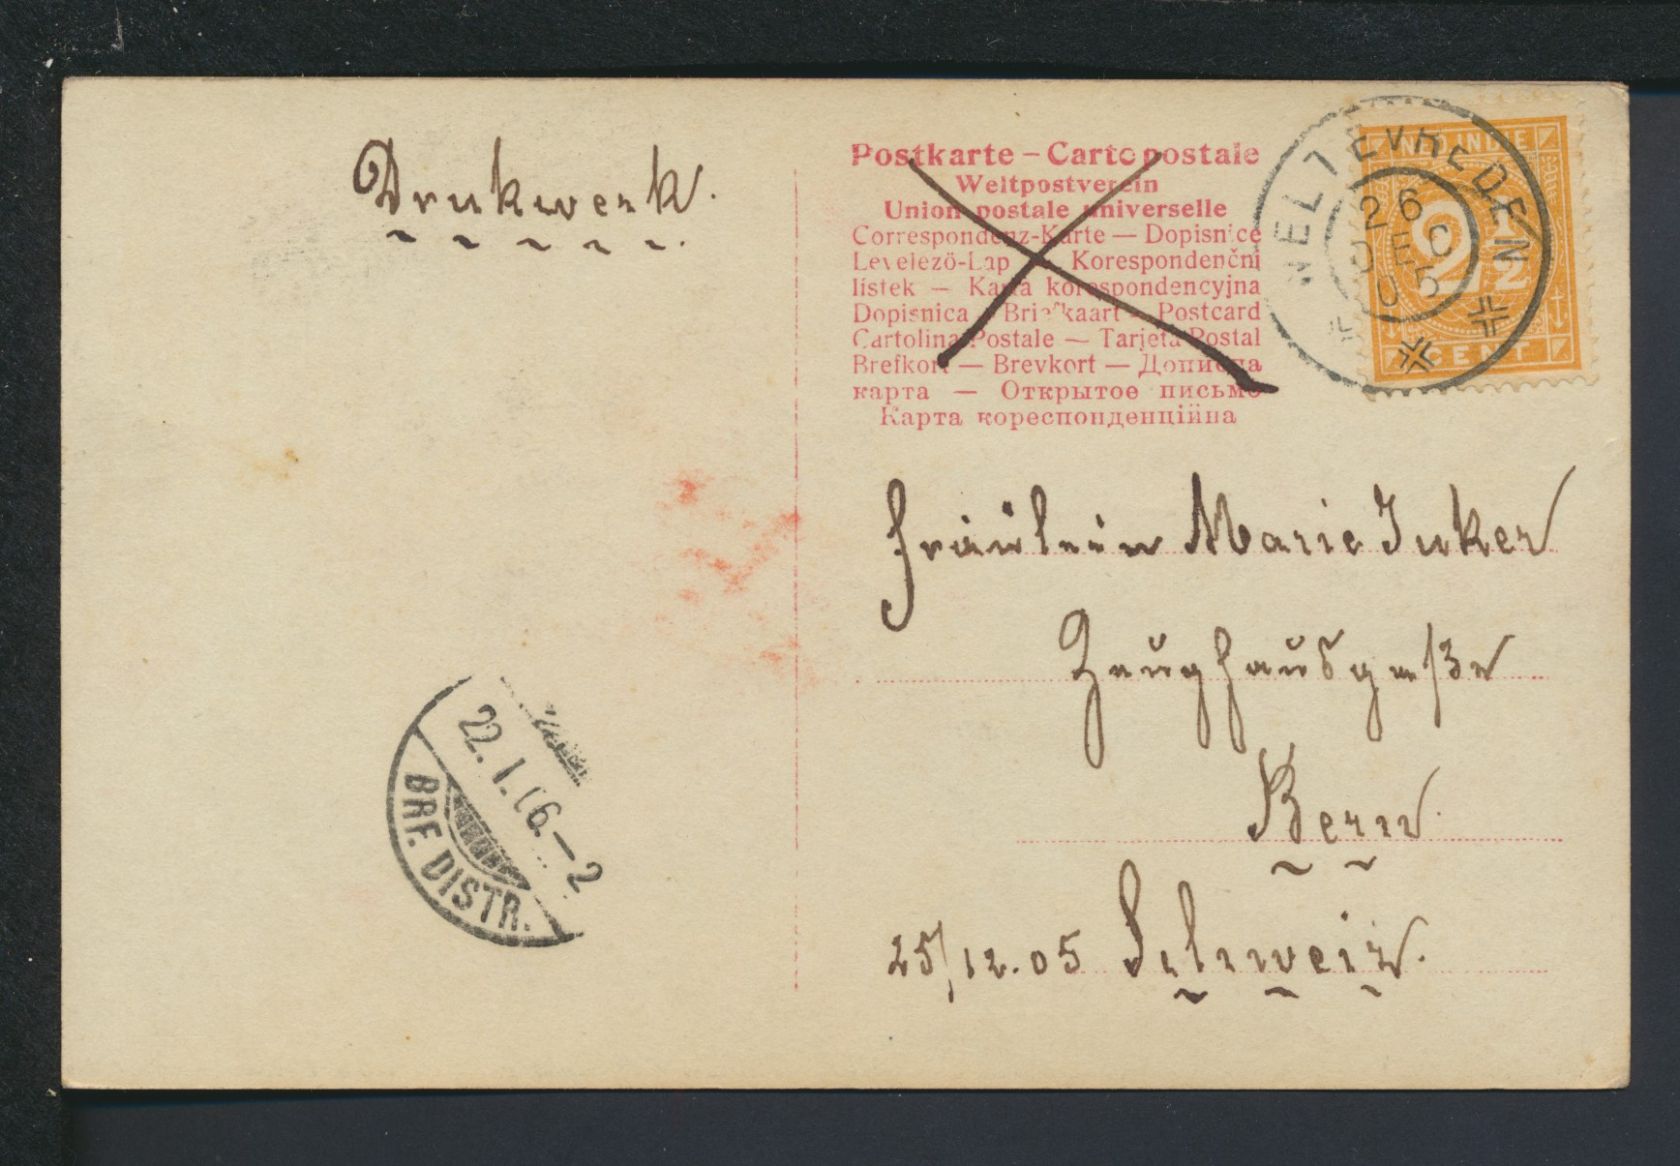 Drukwerk.
Postkarte – Carte postale
Weltpostverein
Union postale universelle
Correspondenz-Karte — Dopisnice
Levelező-Lap — Korespondenční
listek — Karta korespondencyjna
Dopisnica — Briefkaart — Postcard
Cartolina Postale — Tarjeta Postal
Brefkort — Brevkort — Дописна
карта — Открытое письмо
Карта кореспонденційна
NED. INDIE
2 1/2
CENT
WELTEVREDEN
26
DEC
05
Fräulein Marie Juker
Zeughausgasse
Bern.
25/12.05 Schweiz.
22.I.06.–2
BRF. DISTR.